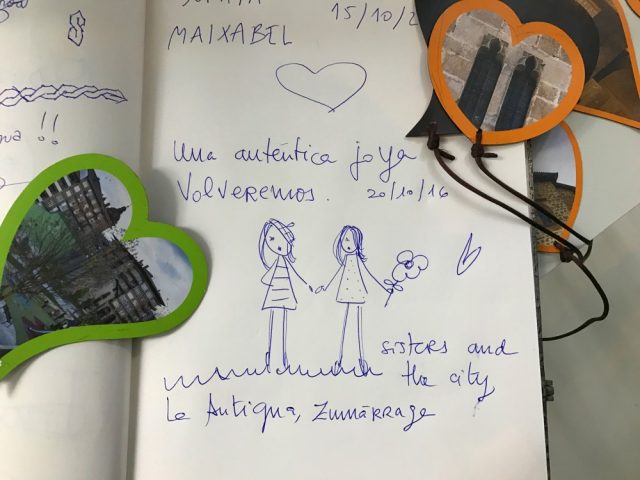 15/10/2
MAIXABEL
!!
Una auténtica joya
Volveremos. 20/10/16
sisters and
the city
La Antigua, Zumárraga